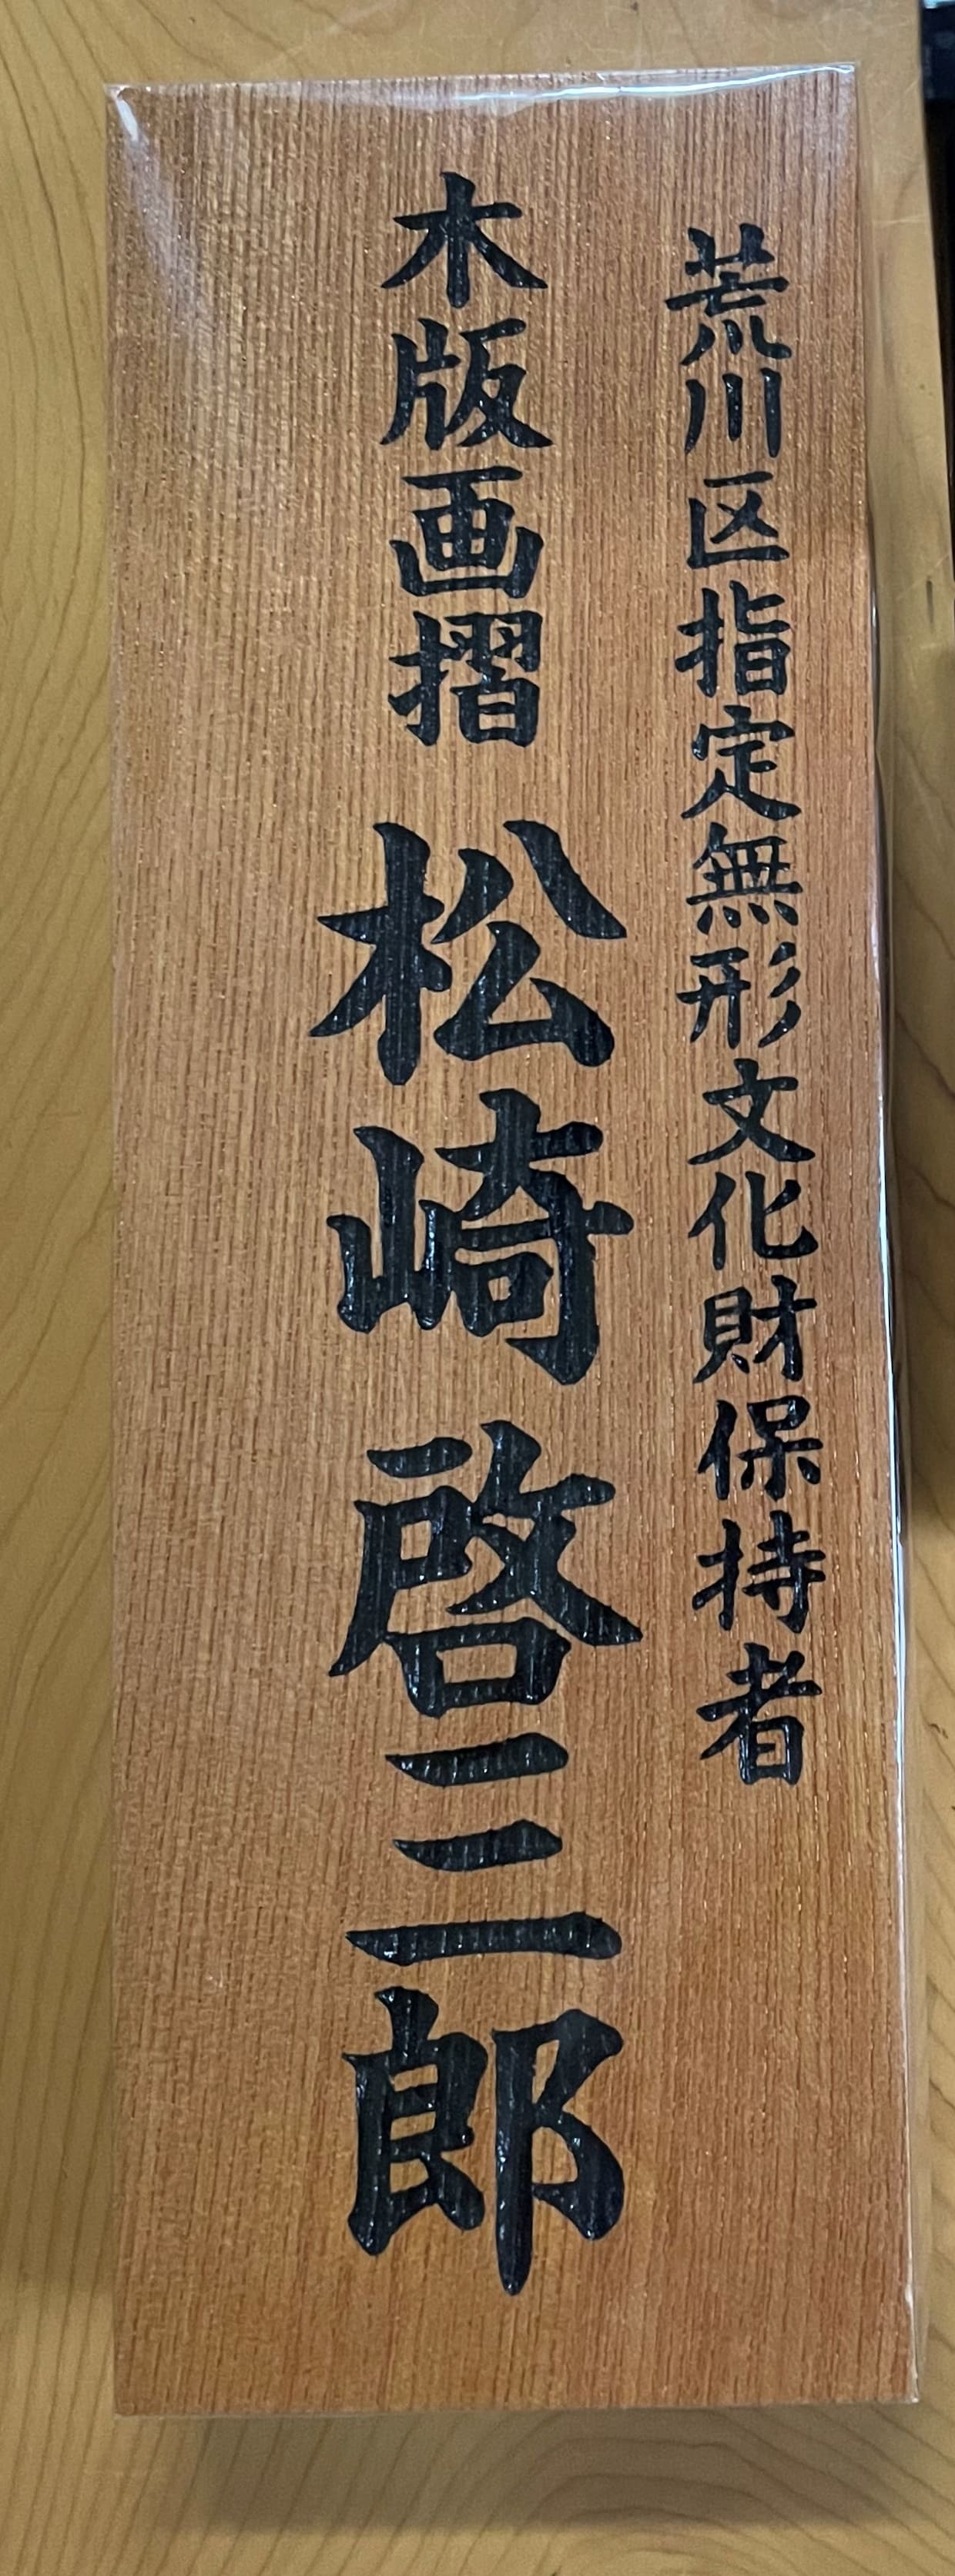 荒川区指定無形文化財保持者
木版画摺 松崎啓三郎